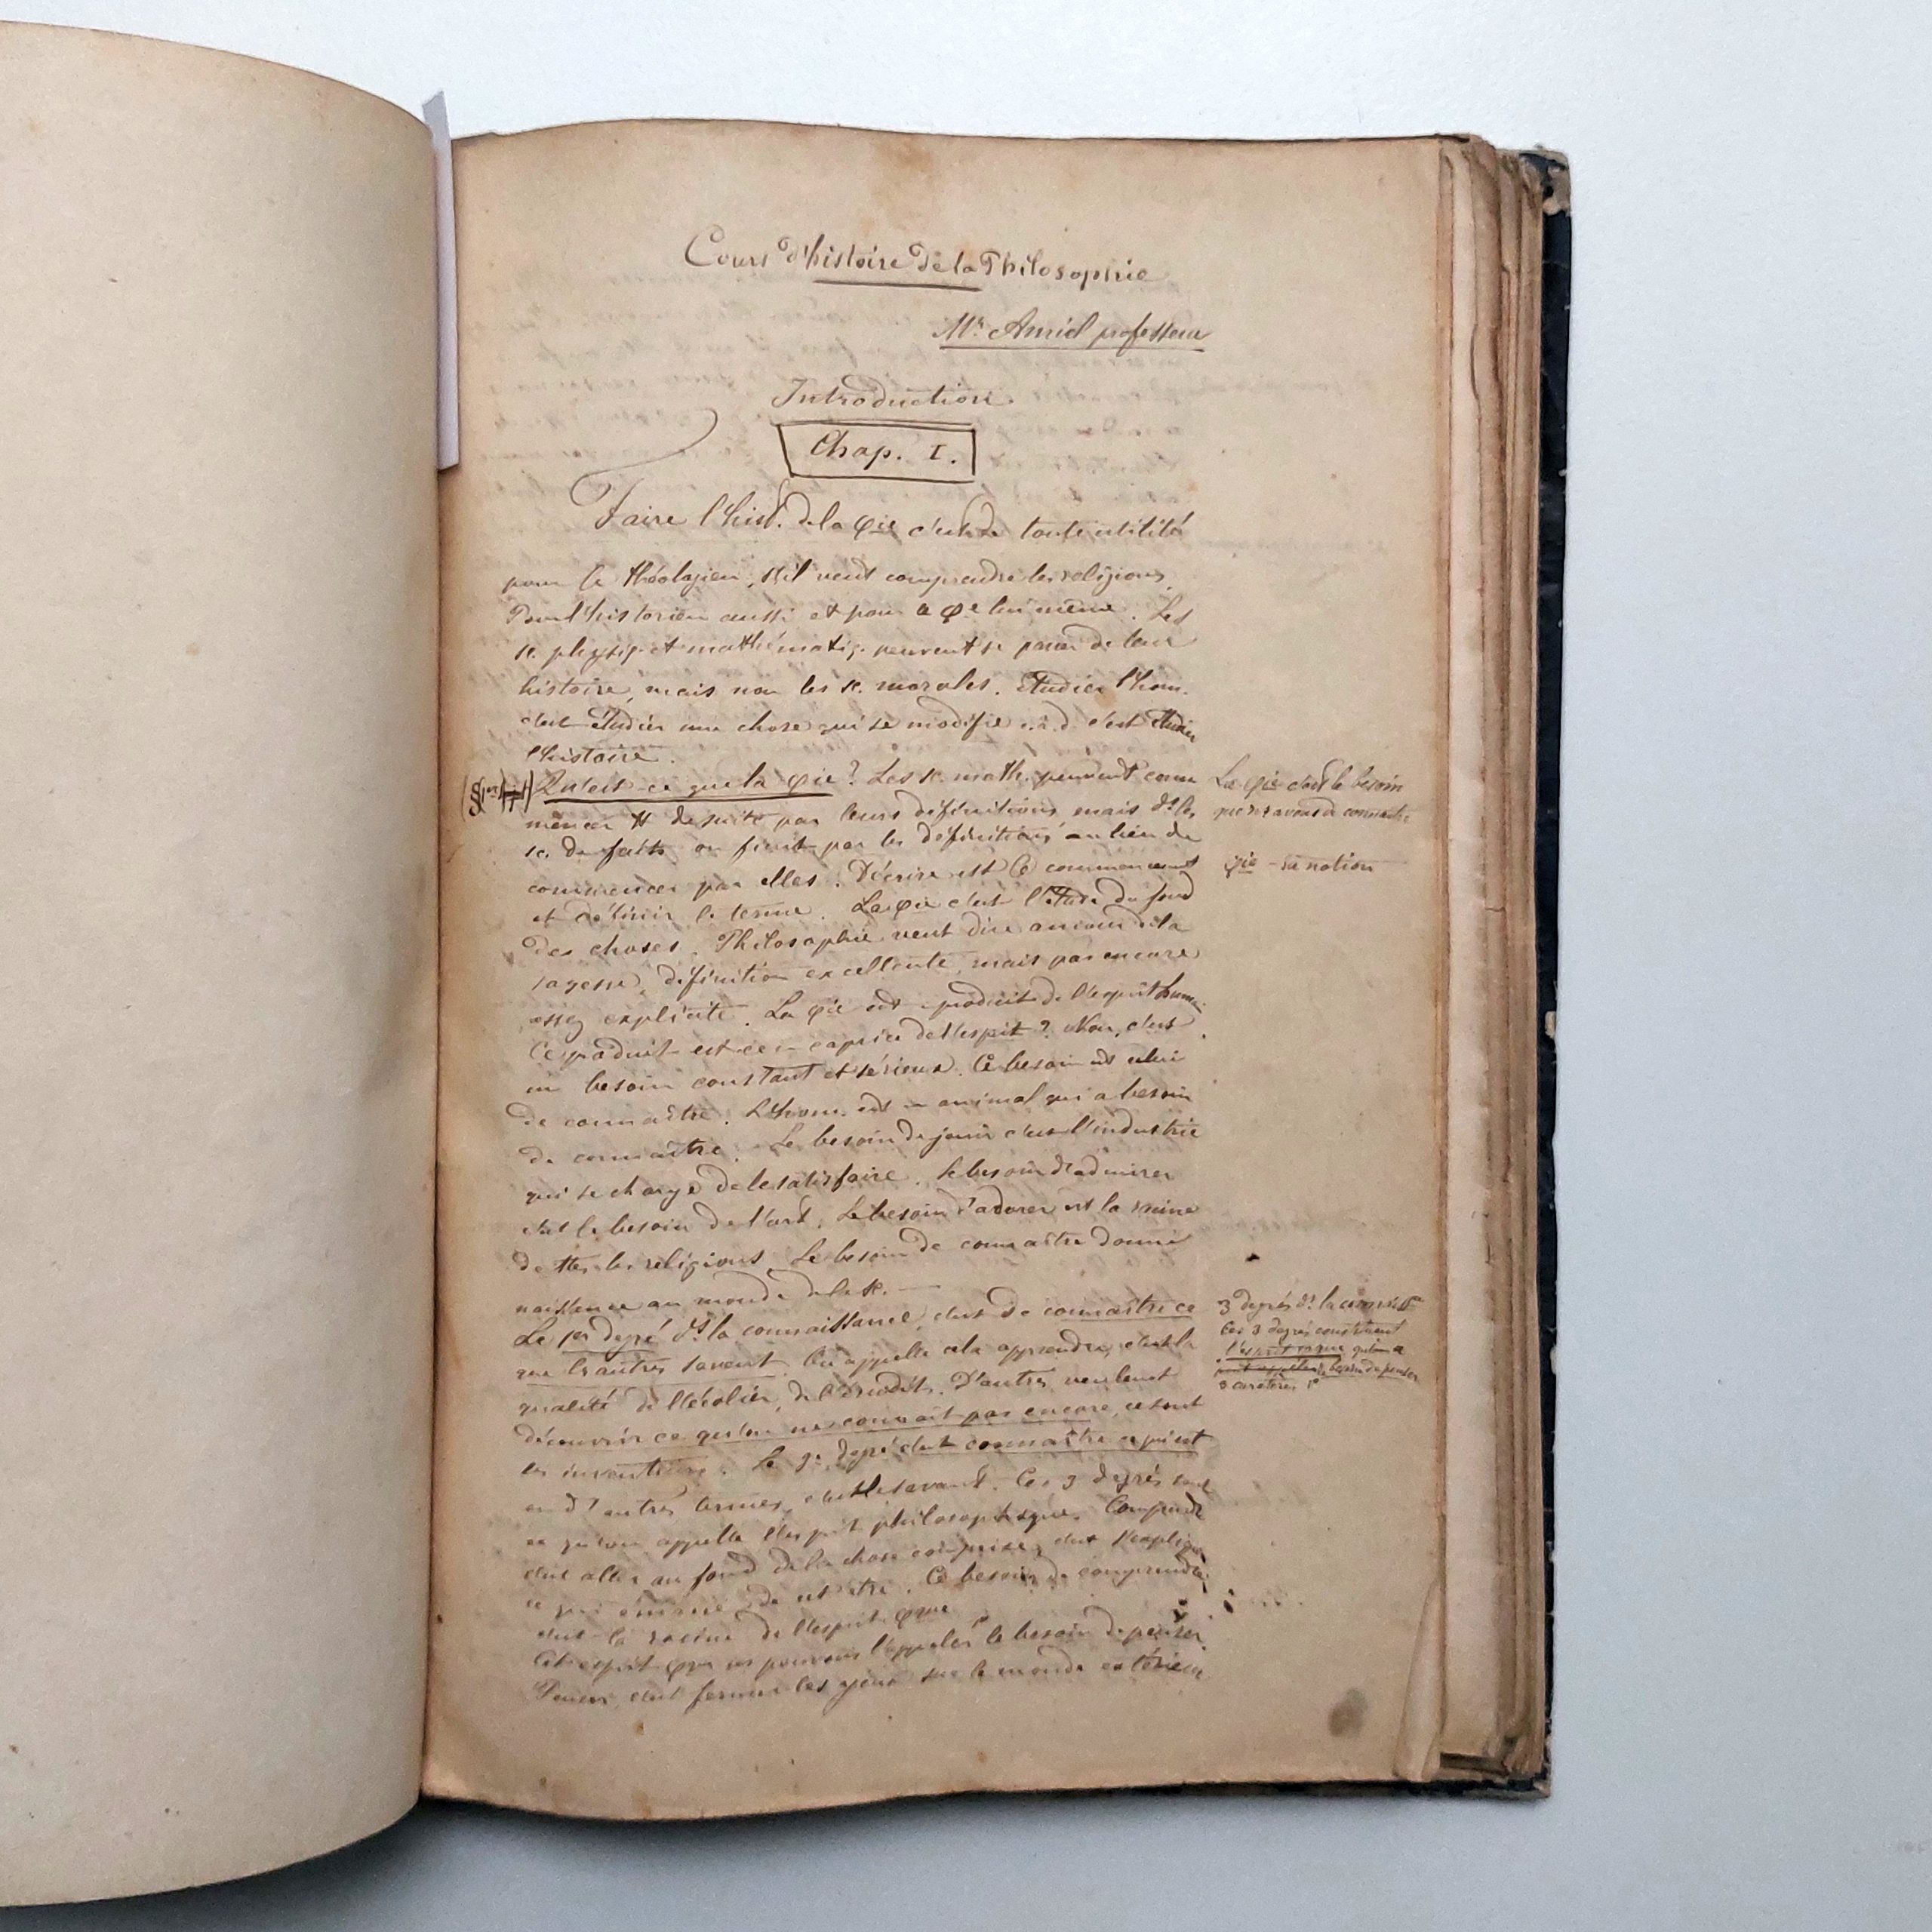 Cours d'histoire de la Philosophie
Mr Amiel professeur
Introduction
Chap. I.
Faire l'hist. de la φie c'est de toute utilité
pour le théologien, s'il veut comprendre les religions.
Pour l'historien aussi et pour le φe lui même. Les
sc. physiq. et mathématiq. peuvent se passer de leur
histoire, mais non les sc. morales. Etudier l'hom.
c'est étudier une chose qui se modifie c.à.d. c'est étudier
l'histoire.
Qu'est-ce que la φie? Les sc. math. peuvent com
mencer tt de suite par leurs définitions, mais ds les
sc. de faits on finit par les définitions au lieu de
commencer par elles. Décrire est le commencement
et définir le terme. La φie c'est l'étude du fond
des choses. Philosophie veut dire amour de la
sagesse, définition excellente, mais pas encore
assez explicite. La φie est produit de l'esprit humain.
Ce produit est-ce caprice de l'esprit? Non, c'est
un besoin constant et sérieux. Ce besoin est celui
de connaître. L'hom. est animal qui a besoin
de connaître. Le besoin de jouir c'est l'industrie
qui se charge de le satisfaire. Le besoin d'admirer
c'est le besoin de l'art. Le besoin d'adorer est la racine
de ttes les religions. Le besoin de connaître donne
naissance au monde de la sc. —
Le 1er degré ds la connaissance, c'est de connaître ce
que les autres savent. On appelle cela apprendre, c'est la
qualité de l'écolier, de l'érudit. D'autres veulent
découvrir ce qu'on ne connait pas encore, ce sont
les inventeurs. Le 3e degré c'est connaître ce qui est
en d'autres termes, c'est le savant. Ces 3 degrés sont
ce qu'on appelle l'esprit philosophique. Comprendre
c'est aller au fond de la chose comprise, c'est
ce qui émane de cet être. Ce besoin de comprendre
c'est la racine de l'esprit φque
Cet esprit φque ns pouvons l'appeler le besoin de penser.
Penser, c'est fermer les yeux sur le monde extérieur
La φie c'est le besoin
que ns avons de connaître
φie – sa notion
3 degrés ds la connaiss.
Ces 3 degrés constituent
l'esprit φque qu'on a
le besoin de penser
3 caractères 1°